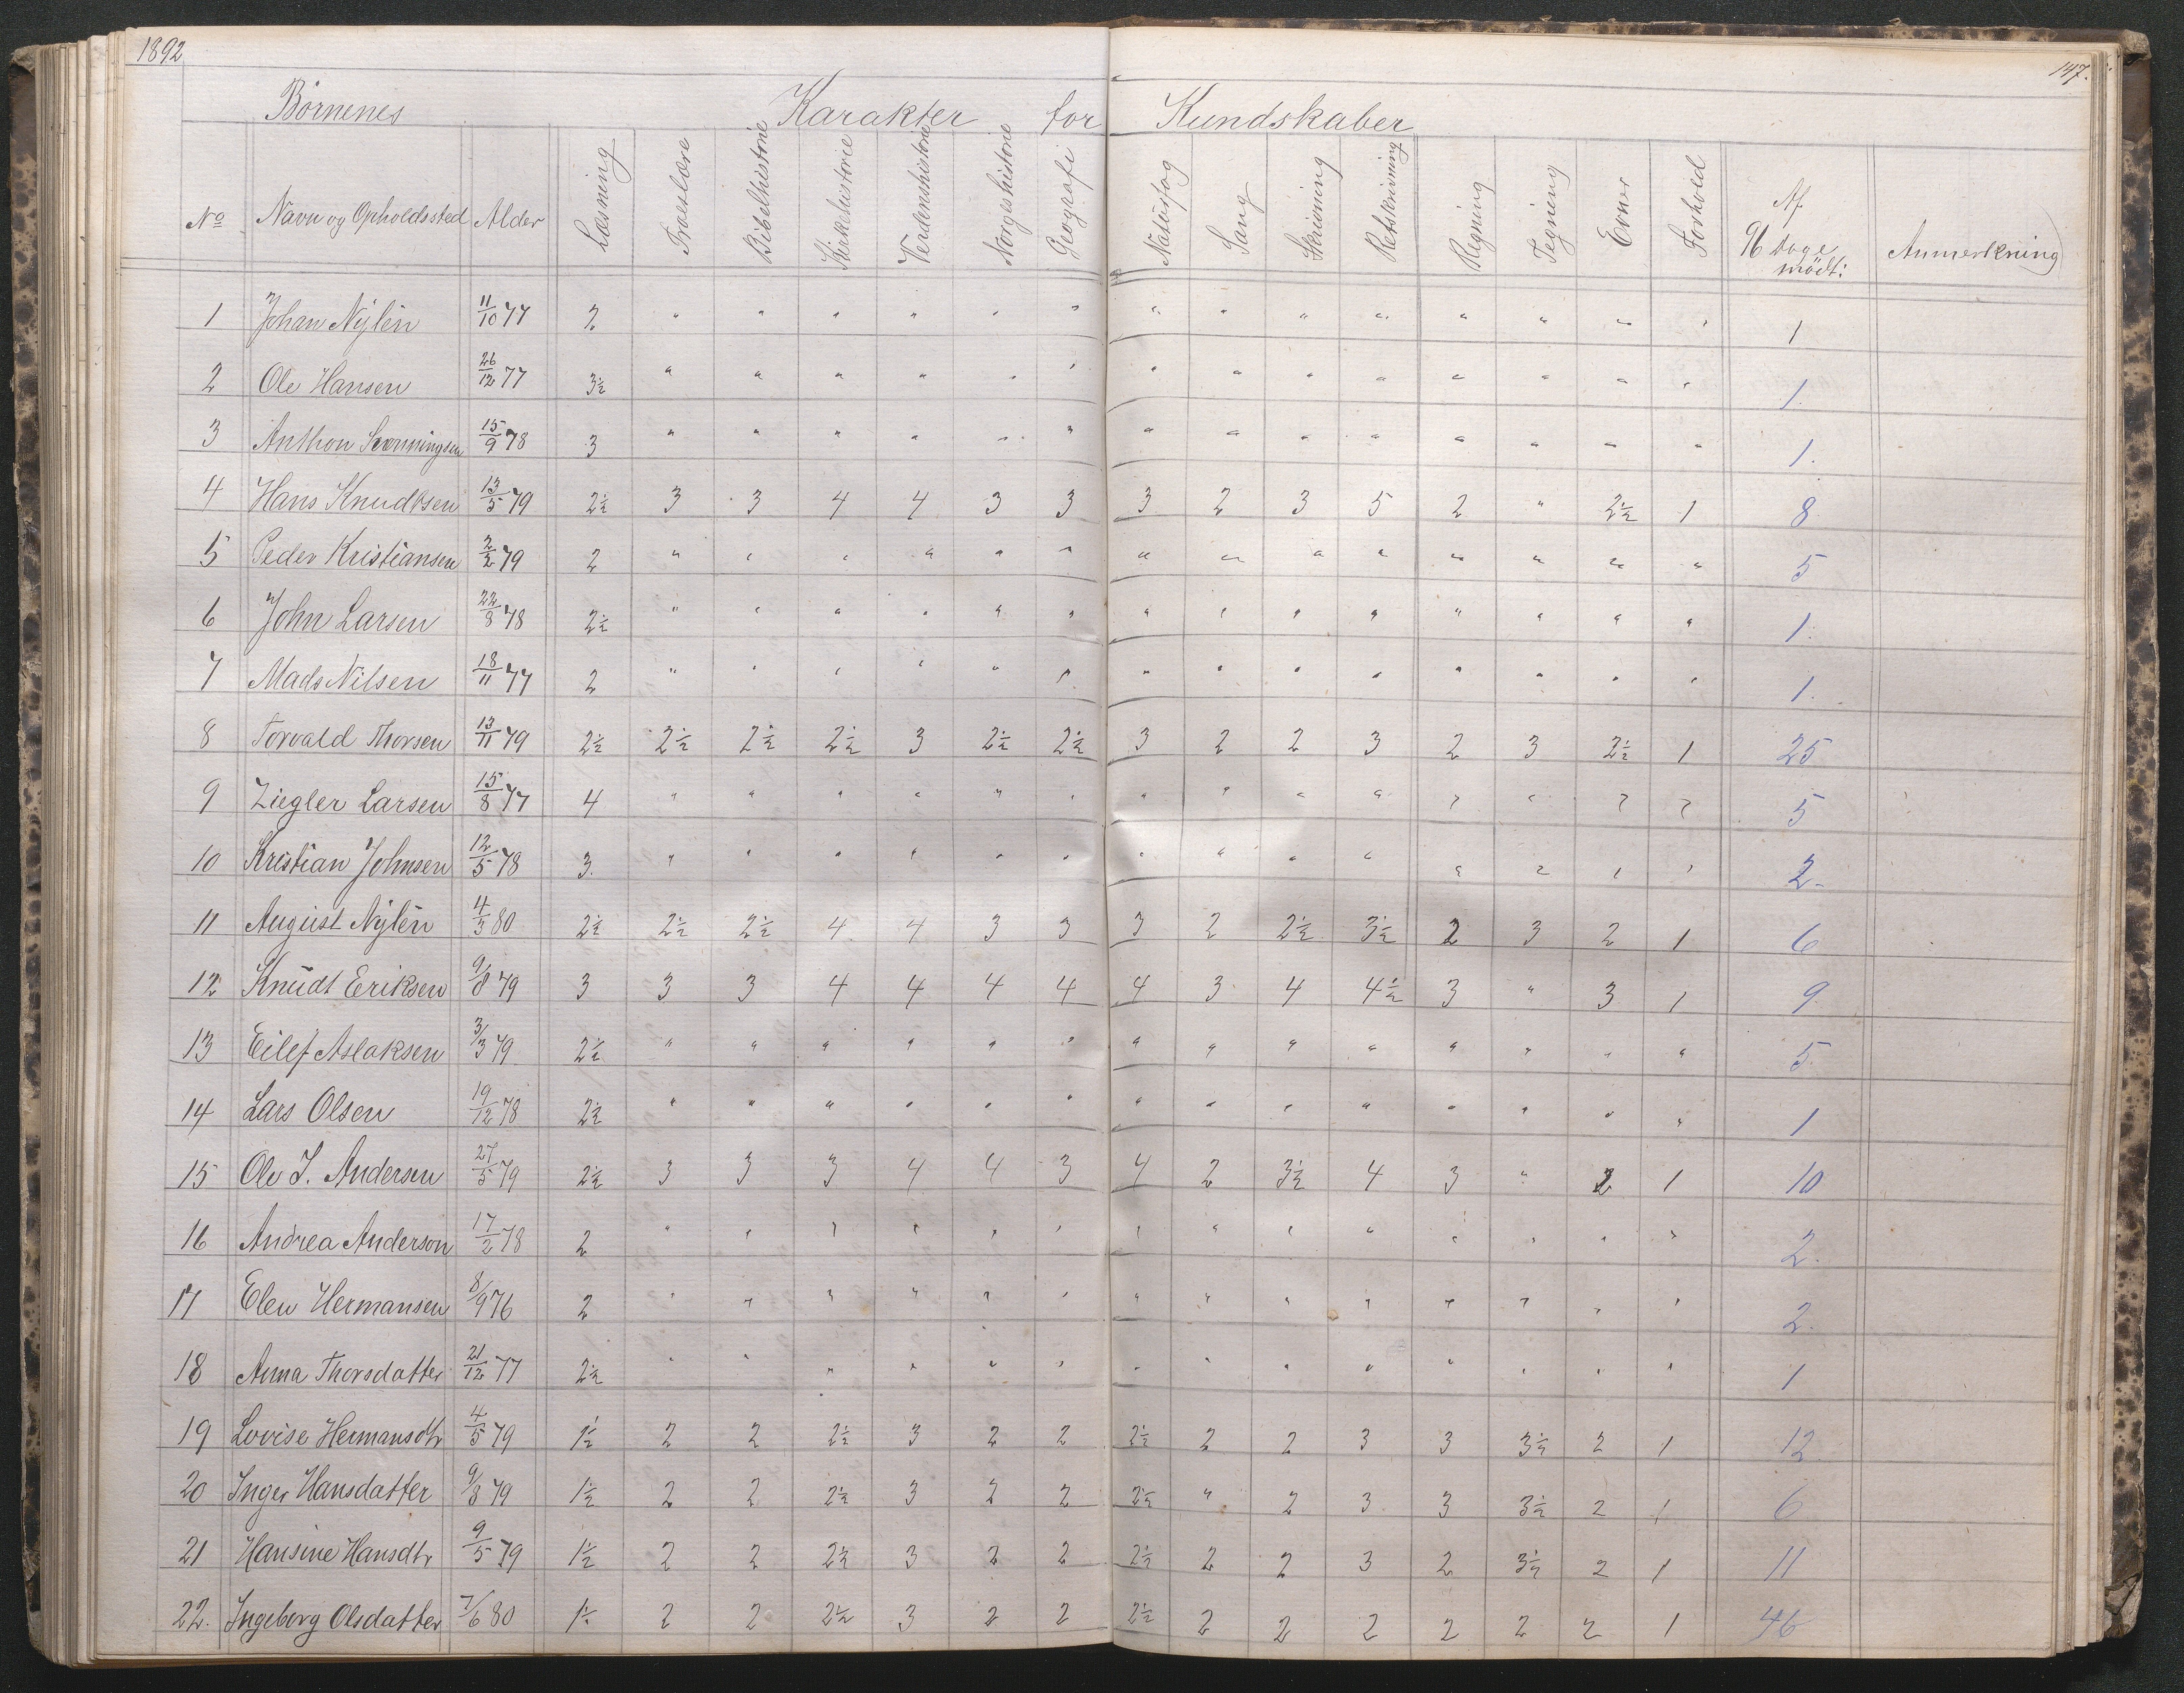 1892
147.
Børnenes Karakter for Kundskaber
No Navn og Opholdssted Alder Læsning Troeslære Bibelhistorie Kirkehistorie Verdenshistorie Norgeshistorie Geografi Naturfag Sang Skrivning Retskrivning Regning Tegning Evner Forhold Af 96 Dage mödt: Anmerkning
1 Johan Nylén 11/10 77 2 " " " " " " " " " " " " " " 1
2 Ole Hansen 26/12 77 3½ " " " " " " " " " " " " " " 1.
3 Anthon 15/9 78 3 " " " " " " " " " " " " " " 1.
4 Hans Knudtsen 13/5 79 2½ 3 3 4 4 3 3 3 2 3 5 2 " 2½ 1 8
5 Peder Kristiansen 2/2 79 2 " " " " " " " " " " " " " " 5
6 John Larsen 22/8 78 2½ " " " " " " " " " " " " " " 1.
7 Mads Nilsen 18/11 77 2 " " " " " " " " " " " " " " 1.
8 Torvald Thorsen 13/11 79 2½ 2½ 2½ 2½ 3 2½ 2½ 3 2 2 3 2 3 2½ 1 25
9 Ziegler Larsen 15/8 77 4 " " " " " " " " " " " " " " 5
10 Kristian Johnsen 12/5 78 3. " " " " " " " " " " " " " " 2.
11 August Nylén 4/3 80 2½ 2½ 2½ 4 4 3 3 3 2 2½ 3½ 2 3 2 1 6
12 Knudt Eriksen 9/8 79 3 3 3 4 4 4 4 4 3 4 4½ 3 " 3 1 9.
13 Eilef Aslaksen 3/3 79 2½ " " " " " " " " " " " " " " 5.
14 Lars Olsen 19/12 78 2½ " " " " " " " " " " " " " " 1
15 Ole J. Andersen 27/5 79 2½ 3 3 3 4 4 3 4 2 3½ 4 3 " 2 1 10
16 Andrea Anderson 17/2 78 2 " " " " " " " " " " " " " " 2.
17 Elen Hermansen 8/9 76 2 " " " " " " " " " " " " " " 2.
18 Anna Thorsdatter 21/12 77 2½ " " " " " " " " " " " " " " 1
19 Lovise Hermansdtr 4/5 79 1½ 2 2 2½ 3 2 2 2½ 2 2 3 3 3½ 2 1 12
20 Inger Hansdatter 9/8 79 1½ 2 2 2½ 3 2 2 2½ " 2 3 3 3½ 2 1 6
21 Hansine Hansdtr 9/5 79 1½ 2 2 2½ 3 2 2 2½ 2 2 3 2 3½ 2 1 11
22. Ingeborg Olsdatter 7/6 80 1½ 2 2 2½ 3 2 2 2½ 2 2 2 2 2 2 1 46